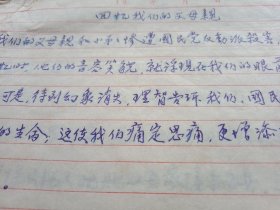 回忆我们的父母亲
我们的父母亲和小利惨遭国民党反动派杀害
他们的音容笑貌,就浮现在我们的眼前
可是,待到幻象消失,理智告诉我们,国民
的生命,这使我们痛定思痛,更增添
。